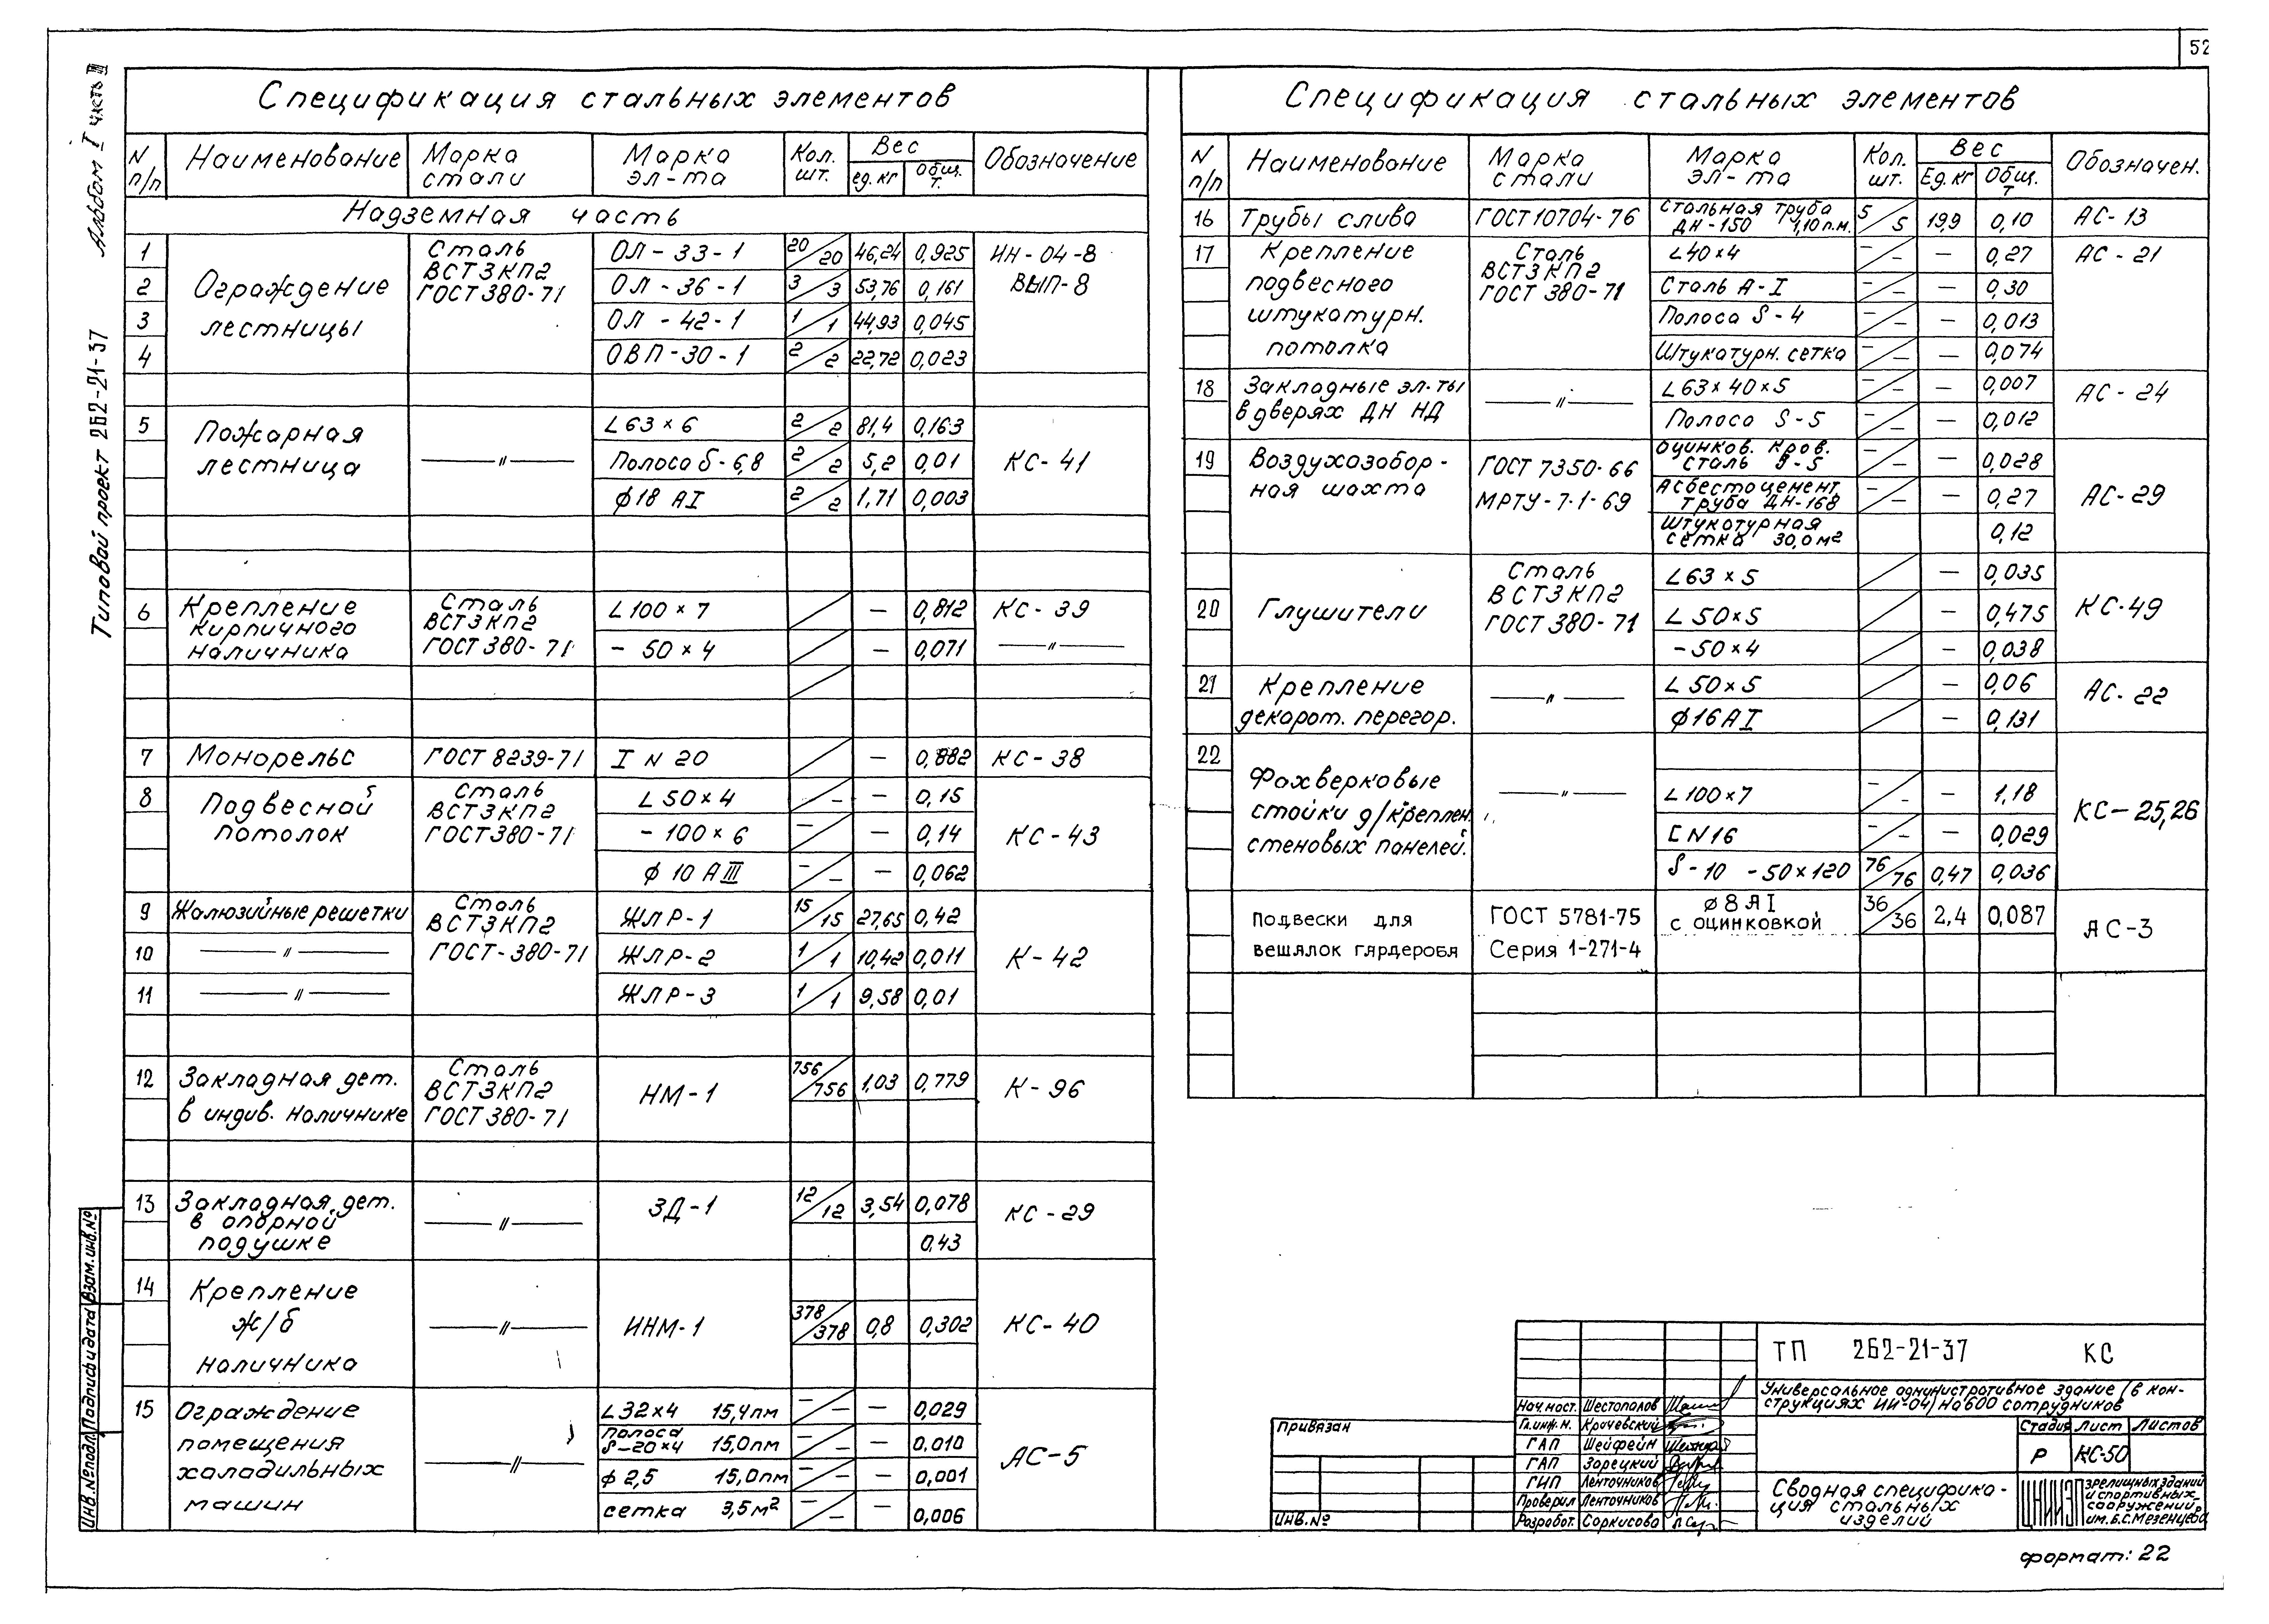 52
Альбом I часть III
Типовой проект 262-21-37
Спецификация стальных элементов
N п/п Наименование Марка стали Марка эл-та Кол. шт. Вес ед. кг Общ. т. Обозначение
Надземная часть
1 Ограждение лестницы Сталь ВСТ3КП2 ГОСТ 380-71 ОЛ-33-1 20/20 46,24 0,925 ИН-04-8 ВЫП-8
2 ОЛ-36-1 3/3 53,76 0,161
3 ОЛ-42-1 1/1 44,93 0,045
4 ОВП-30-1 2/2 22,72 0,023
5 Пожарная лестница —〃— L63×6 2/2 81,4 0,163 КС-41
Полоса δ-6,8 2/2 5,2 0,01
ϕ18 АI 2/2 1,71 0,003
6 Крепление кирпичного наличника Сталь ВСТ3КП2 ГОСТ 380-71 L100×7 — 0,812 КС-39
- 50×4 — 0,071 —〃—
7 Монорельс ГОСТ 8239-71 I N 20 — 0,882 КС-38
8 Подвесной потолок Сталь ВСТ3КП2 ГОСТ 380-71 L50×4 -/- — 0,15 КС-43
- 100×6 -/- — 0,14
ϕ 10 АIII -/- — 0,062
9 Жалюзийные решетки Сталь ВСТ3КП2 ГОСТ-380-71 ЖЛР-1 15/15 27,65 0,42 К-42
10 —〃— ЖЛР-2 1/1 10,42 0,011
11 —〃— ЖЛР-3 1/1 9,58 0,01
12 Закладная дет. в индив. наличнике Сталь ВСТ3КП2 ГОСТ 380-71 НМ-1 756/756 1,03 0,779 К-96
13 Закладная дет. в опорной подушке —〃— ЗД-1 12/12 3,54 0,078 КС-29
0,43
14 Крепление ж/б наличника —〃— ИНМ-1 378/378 0,8 0,302 КС-40
15 Ограждение помещения халадильных машин —〃— L32×4 15,4пм -/- — 0,029 АС-5
полоса δ-20×4 15,0пм -/- — 0,010
ϕ 2,5 15,0пм -/- — 0,001
сетка 3,5м² -/- — 0,006
Спецификация стальных элементов
N п/п Наименование Марка стали Марка эл-та Кол. шт. Вес Ед. кг Общ. т Обозначен.
16 Трубы слива ГОСТ 10704-76 Стальная труба ДН-150 1,10 п.м. 5/5 19,9 0,10 АС-13
17 Крепление подвесного штукатурн. потолка Сталь ВСТ3КП2 ГОСТ 380-71 L40×4 -/- — 0,27 АС-21
Сталь А-I -/- — 0,30
Полоса δ-4 -/- — 0,013
Штукатурн. сетка -/- — 0,074
18 Закладные эл-ты в дверях ДН НД —〃— L63×40×5 -/- — 0,007 АС-24
Полоса δ-5 -/- — 0,012
19 Воздухозаборная шахта ГОСТ 7350-66 МРТУ-7-1-69 Оцинков. кров. сталь δ-5 -/- — 0,028 АС-29
Асбестоцемент. труба ДН-168 -/- — 0,27
Штукатурная сетка 30,0м² 0,12
20 Глушители Сталь ВСТ3КП2 ГОСТ 380-71 L63×5 — 0,035 КС-49
L 50×5 — 0,475
-50×4 — 0,038
21 Крепление декорат. перегор. —〃— L 50×5 — 0,06 АС-22
ϕ16АI — 0,131
22 Фахверковые стойки д/креплен. стеновых панелей. —〃— L100×7 -/- — 1,18 КС-25,26
[ N16 -/- — 0,029
δ-10 -50×120 76/76 0,47 0,036
Подвески для вешалок гардероба ГОСТ 5781-75 Серия 1-271-4 ϕ8АI с оцинковкой 36/36 2,4 0,087 АС-3
ИНВ.№подл. Подпись и дата Взам.инв.№
Привязан
ИНВ.№
Нач.маст. Шестопалов
Гл.инж.М. Кричевский
ГАП Шейфейн
ГАП Зарецкий
ГИП Ленточников
Проверил Ленточников
Разработ. Саркисова
ТП 262-21-37 КС
Универсальное административное здание (в конструкциях ИИ-04) на 600 сотрудников
Стадия Лист Листов
Р КС-50
Сводная спецификация стальных изделий
ЦНИИЭП зрелищных зданий и спортивных сооружений им. Б.С. Мезенцева
формат: 22